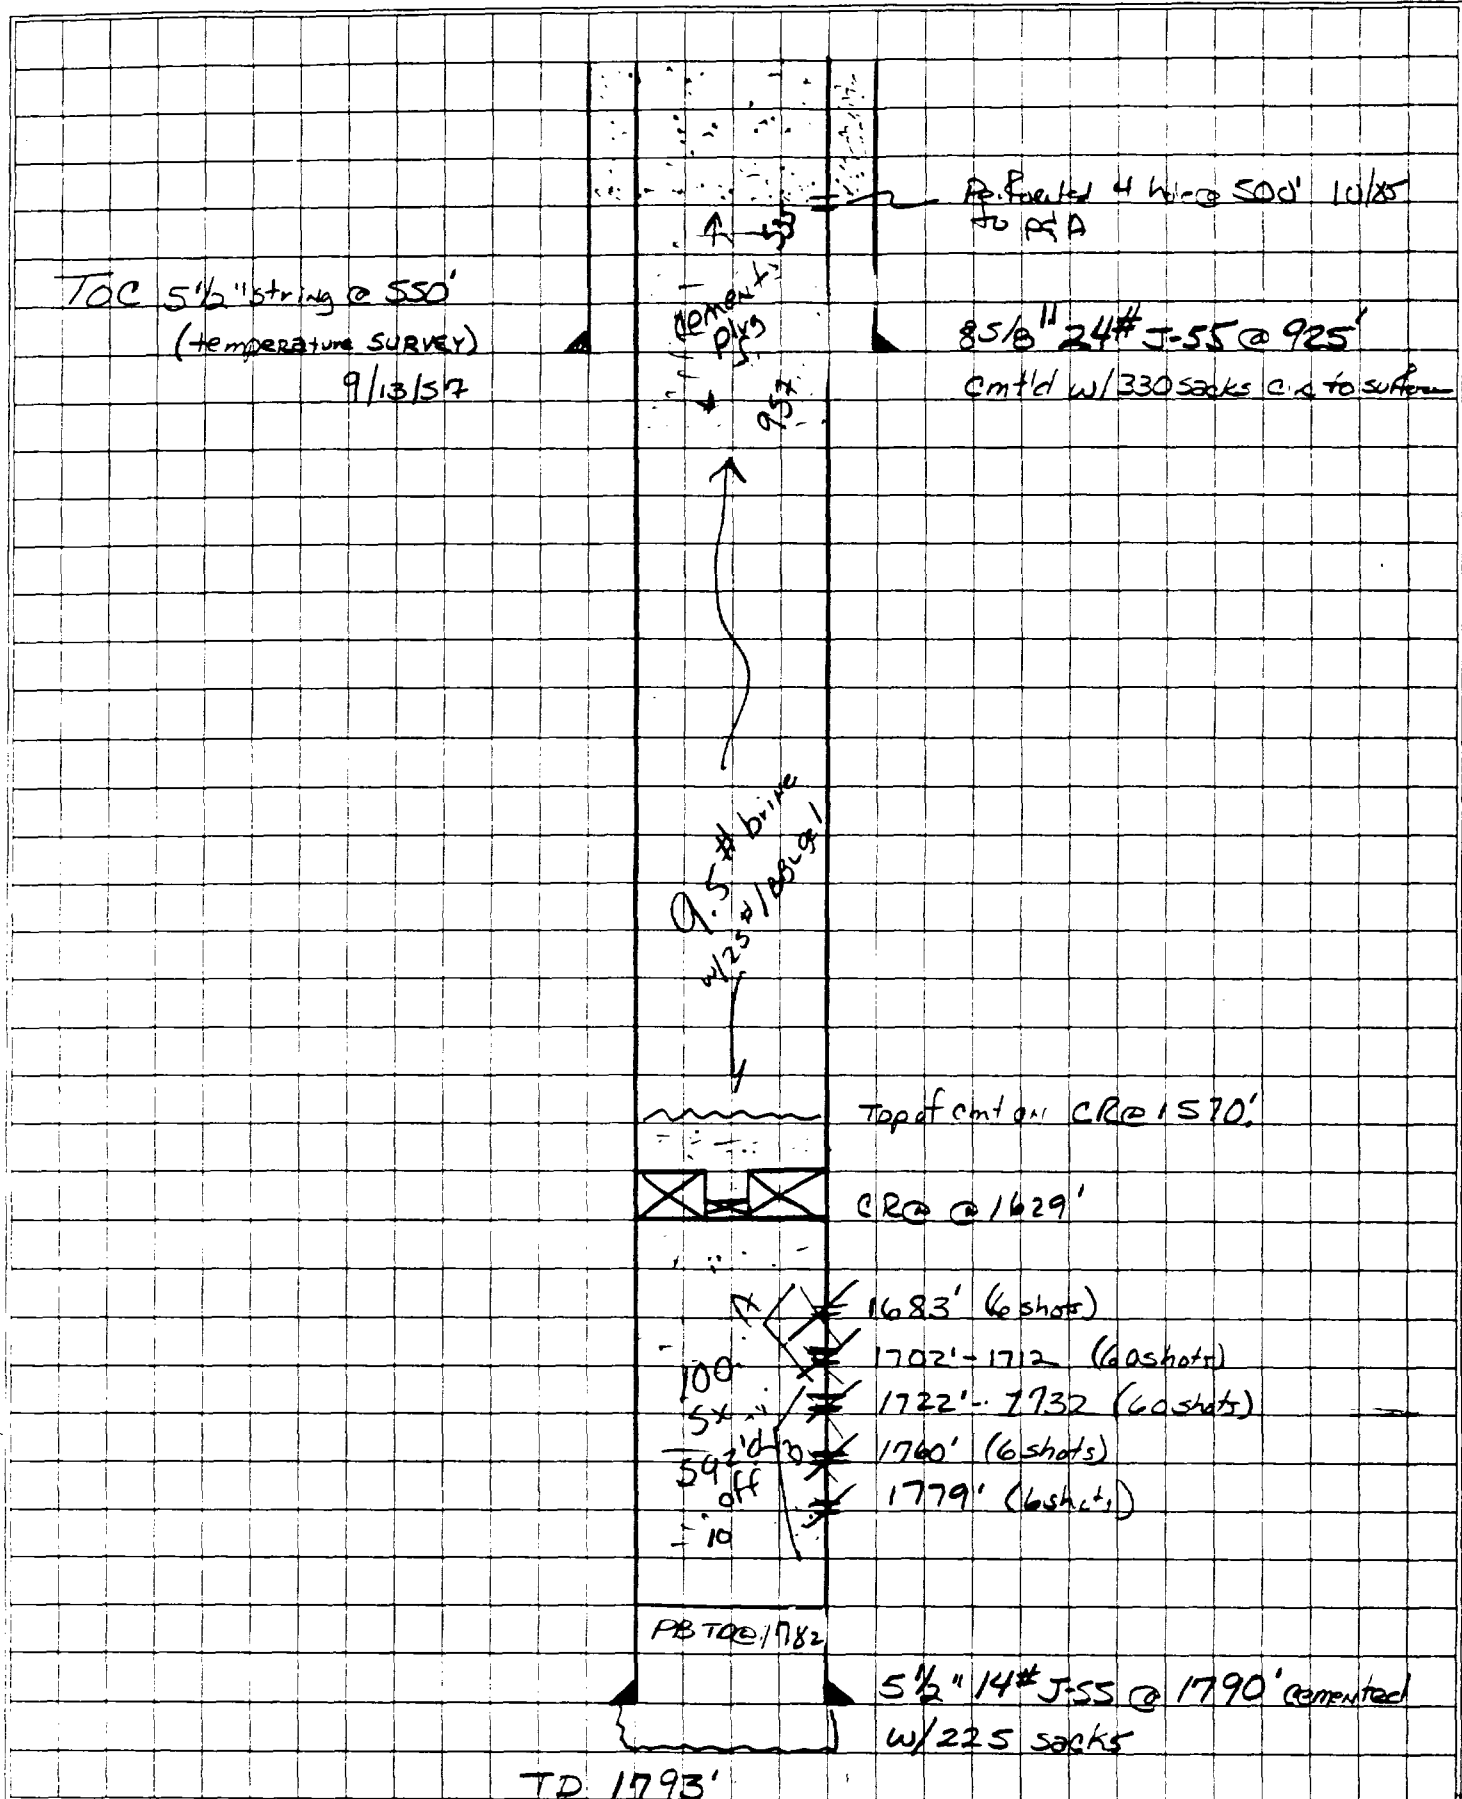 4 holes @ 500' 10/85
to P&A
TOC 5 1/2" string @ 550'
(temperature SURVEY)
9/13/57
cement
plug
8 5/8" 24# J-55 @ 925'
Cmt'd w/330 sacks to surface
9.5# brine
w/25#/BBL gel
Top of cmt on CR @ 1570'
CR @ @ 1629'
1683' (6 shots)
1702'-1712 (60 shots)
1722'-1732 (60 shots)
1760' (6 shots)
1779' (6 shots)
100
5x
sqz'd
off
PBTD @ 1782
5 1/2" 14# J-55 @ 1790' cemented
w/225 sacks
TD 1793'